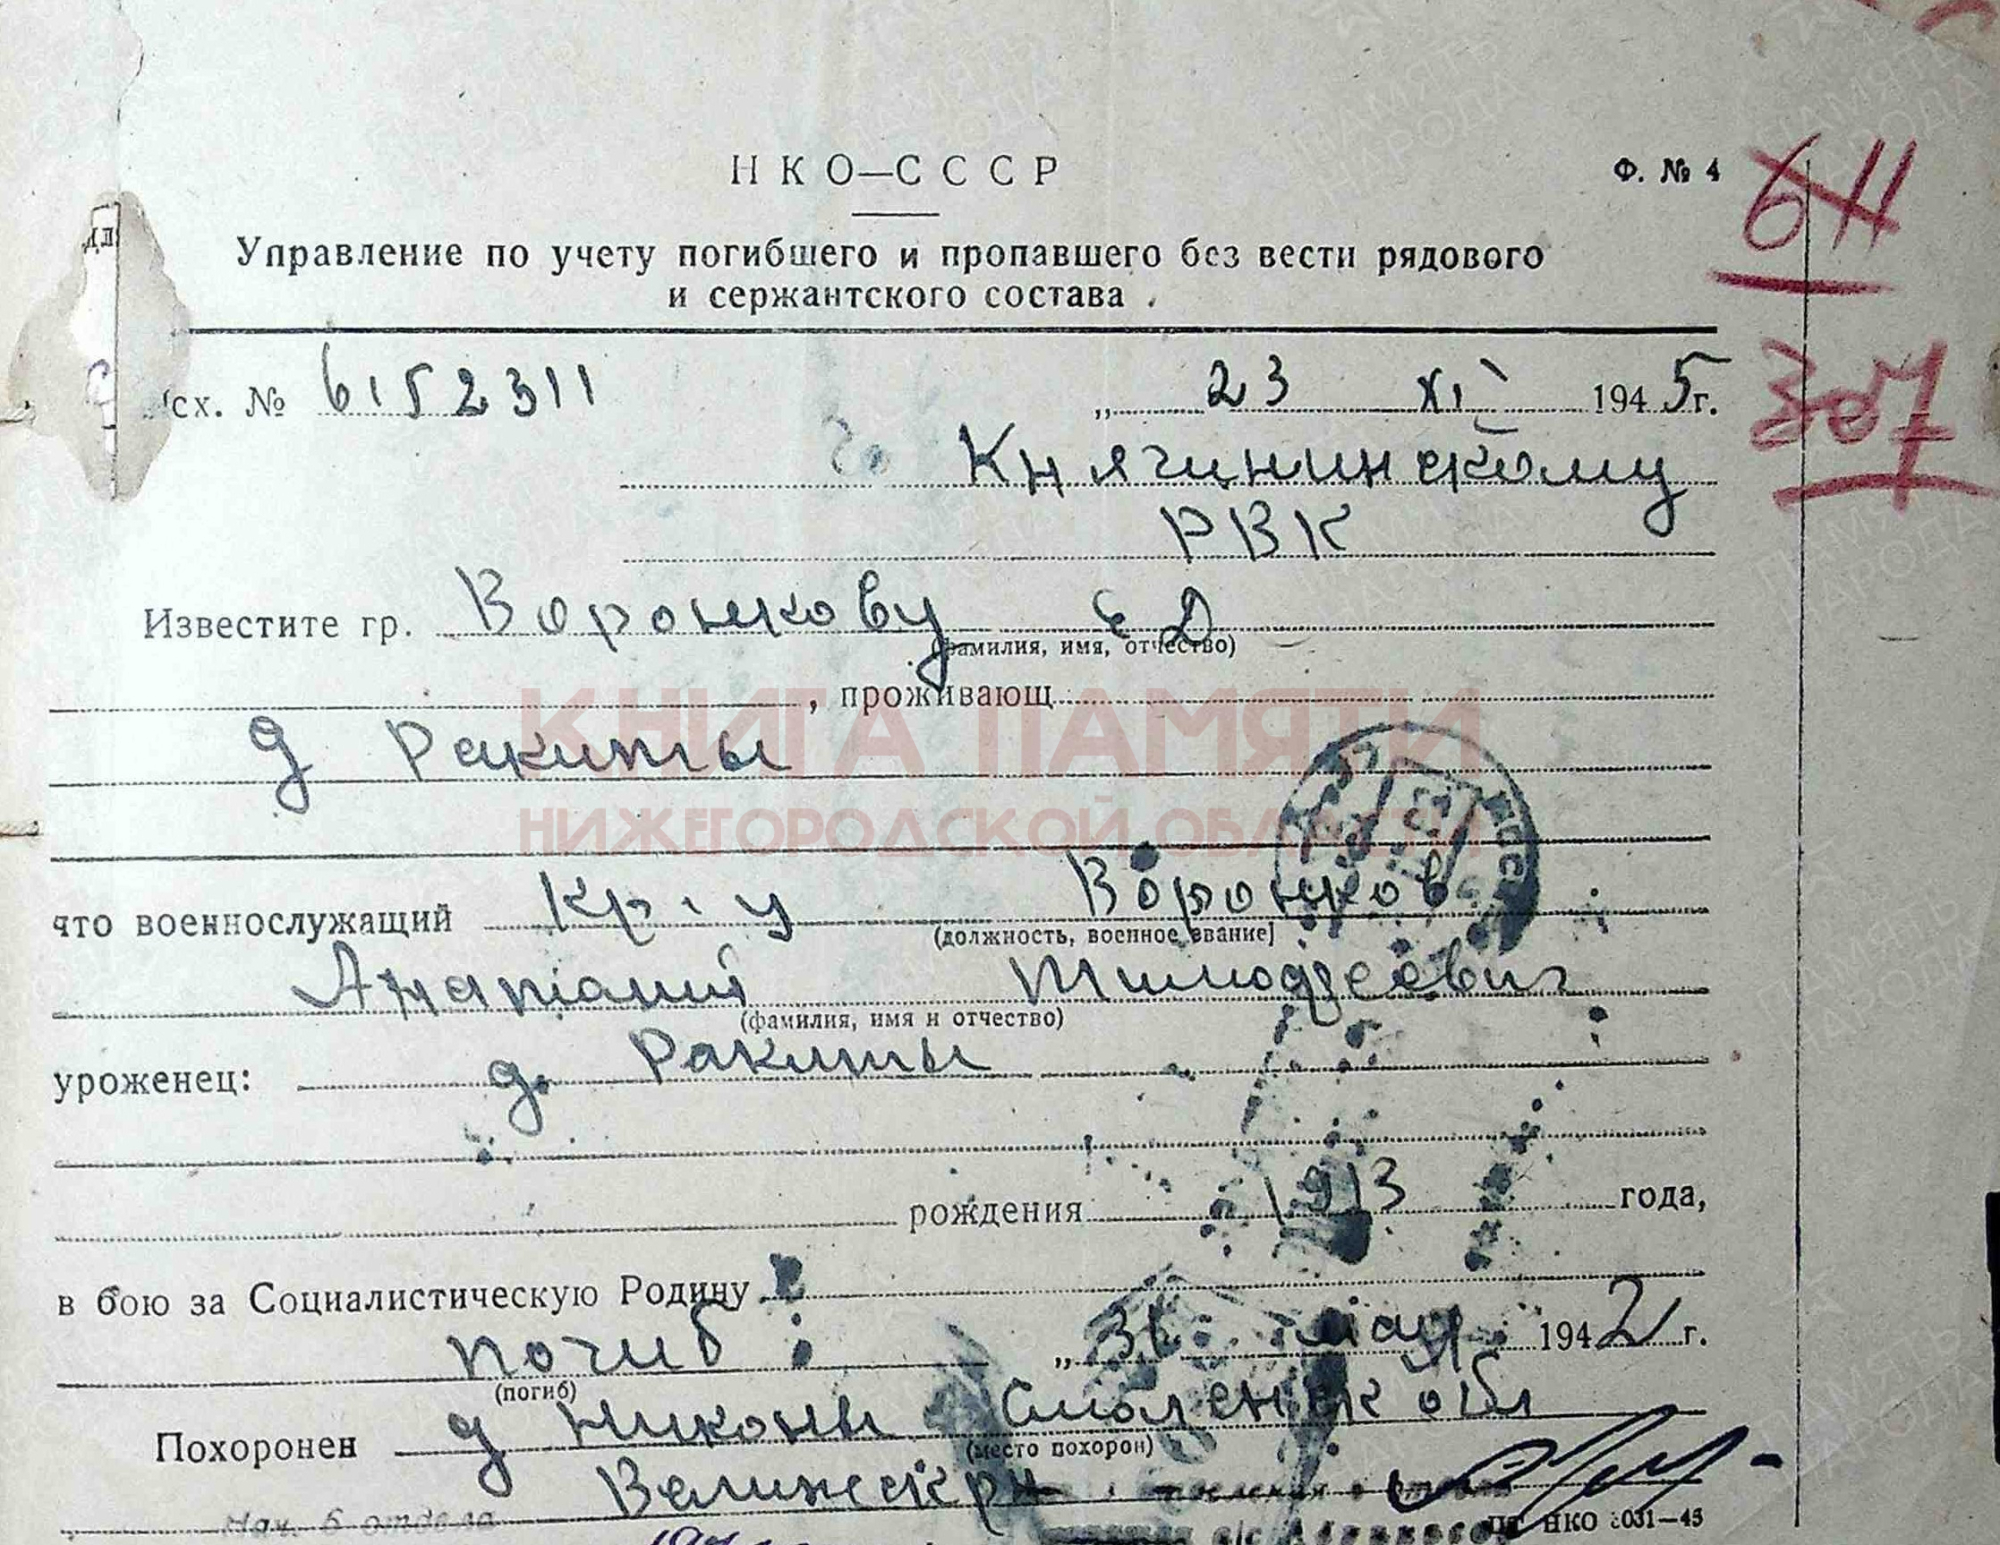 611
НКО—СССР
Ф. № 4
Управление по учету погибшего и пропавшего без вести рядового
и сержантского состава.
307
сх. № 6152311 „ 23 XI 1945 г.
Княгининскому
РВК
Известите гр. Воронкову Е Д
(фамилия, имя, отчество)
, проживающ
д Ракиты
КНИГА ПАМЯТИ
НИЖЕГОРОДСКОЙ ОБЛАСТИ
что военнослужащий Кр-ц Воронков
(должность, военное звание)
Анатолий Тимофеевич
(фамилия, имя и отчество)
уроженец: д. Ракиты
рождения 1913 года,
в бою за Социалистическую Родину
погиб „ 31 мая 1942 г.
(погиб)
Похоронен д Никоны Смоленск обл
(место похорон)
Велижск рн
Нач. 6 отдела
НКО 031—45